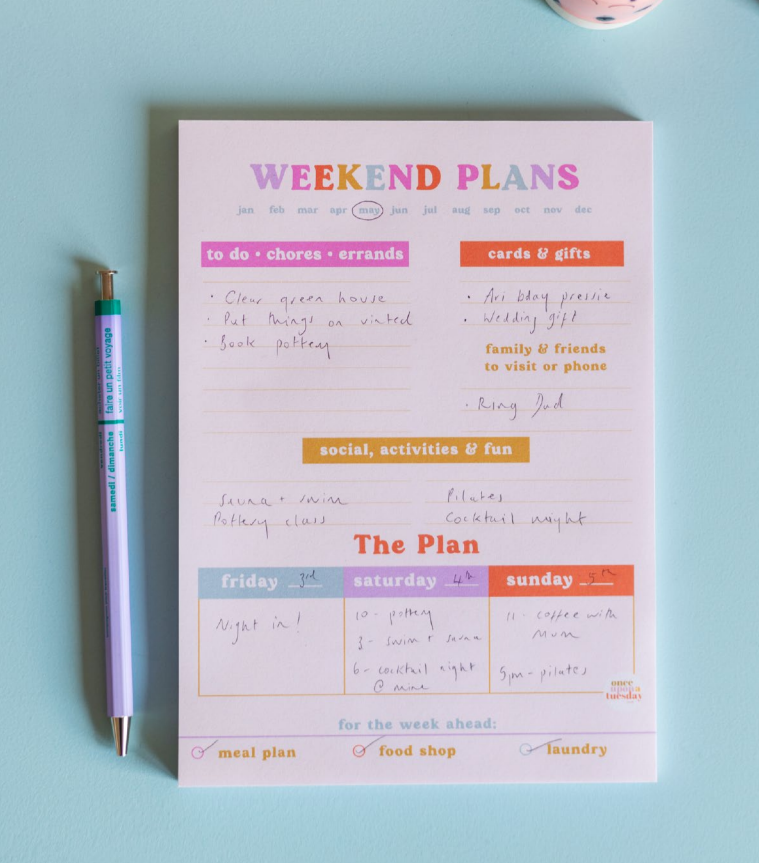 WEEKEND PLANS
jan feb mar apr may jun jul aug sep oct nov dec
to do • chores • errands
· Clear green house
· Put things on vinted
· Book pottery
cards & gifts
· Ari bday pressie
· Wedding gift
family & friends
to visit or phone
· Ring Dad
social, activities & fun
Sauna + swim
Pottery class
Pilates
Cocktail night
The Plan
friday 3rd
Night in!
saturday 4th
10 - pottery
3 - swim + sauna
6 - cocktail night
@ mine
sunday 5th
11 - coffee with
Mum
5pm - pilates
once
upon a
tuesday
for the week ahead:
meal plan food shop laundry
faire un petit voyage
samedi / dimanche
lundi